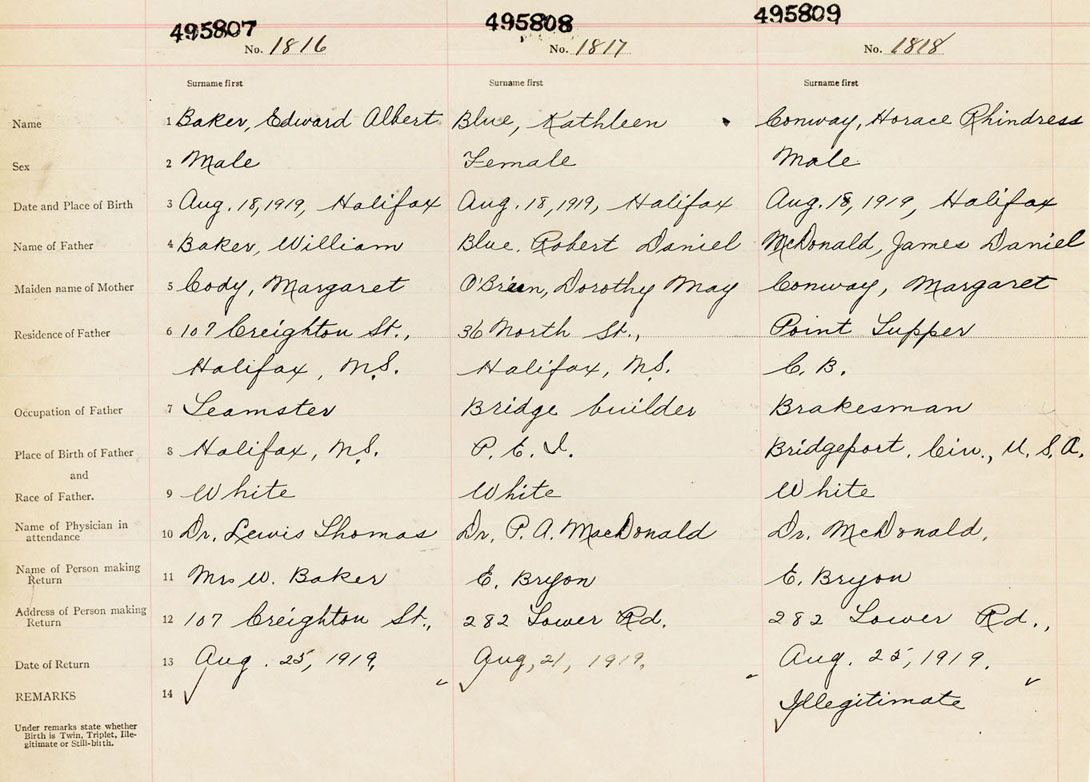 495807 495808 495809
No. 1816 No. 1817 No. 1818
Surname first Surname first Surname first
Name 1 Baker, Edward Albert Blue, Kathleen Conway, Horace Rhindress
Sex 2 Male Female Male
Date and Place of Birth 3 Aug. 18, 1919, Halifax Aug. 18, 1919, Halifax Aug. 18, 1919, Halifax
Name of Father 4 Baker, William Blue, Robert Daniel McDonald, James Daniel
Maiden name of Mother 5 Cody, Margaret O'Brien, Dorothy May Conway, Margaret
Residence of Father 6 107 Creighton St., 36 North St., Point Tupper
Halifax, N.S. Halifax, N.S. C. B.
Occupation of Father 7 Teamster Bridge builder Brakesman
Place of Birth of Father 8 Halifax, N.S. P. E. I. Bridgeport, U. S. A.
and
Race of Father. 9 White White White
Name of Physician in
attendance 10 Dr. Lewis Thomas Dr. P. A. MacDonald Dr. McDonald,
Name of Person making
Return 11 Mrs W. Baker E. Bryon E. Bryon
Address of Person making
Return 12 107 Creighton St., 282 Tower Rd. 282 Tower Rd.,
Date of Return 13 Aug. 25, 1919. Aug, 21, 1919. Aug. 25, 1919.
REMARKS 14 Illegitimate
Under remarks state whether
Birth is Twin, Triplet, Ille-
gitimate or Still-birth.